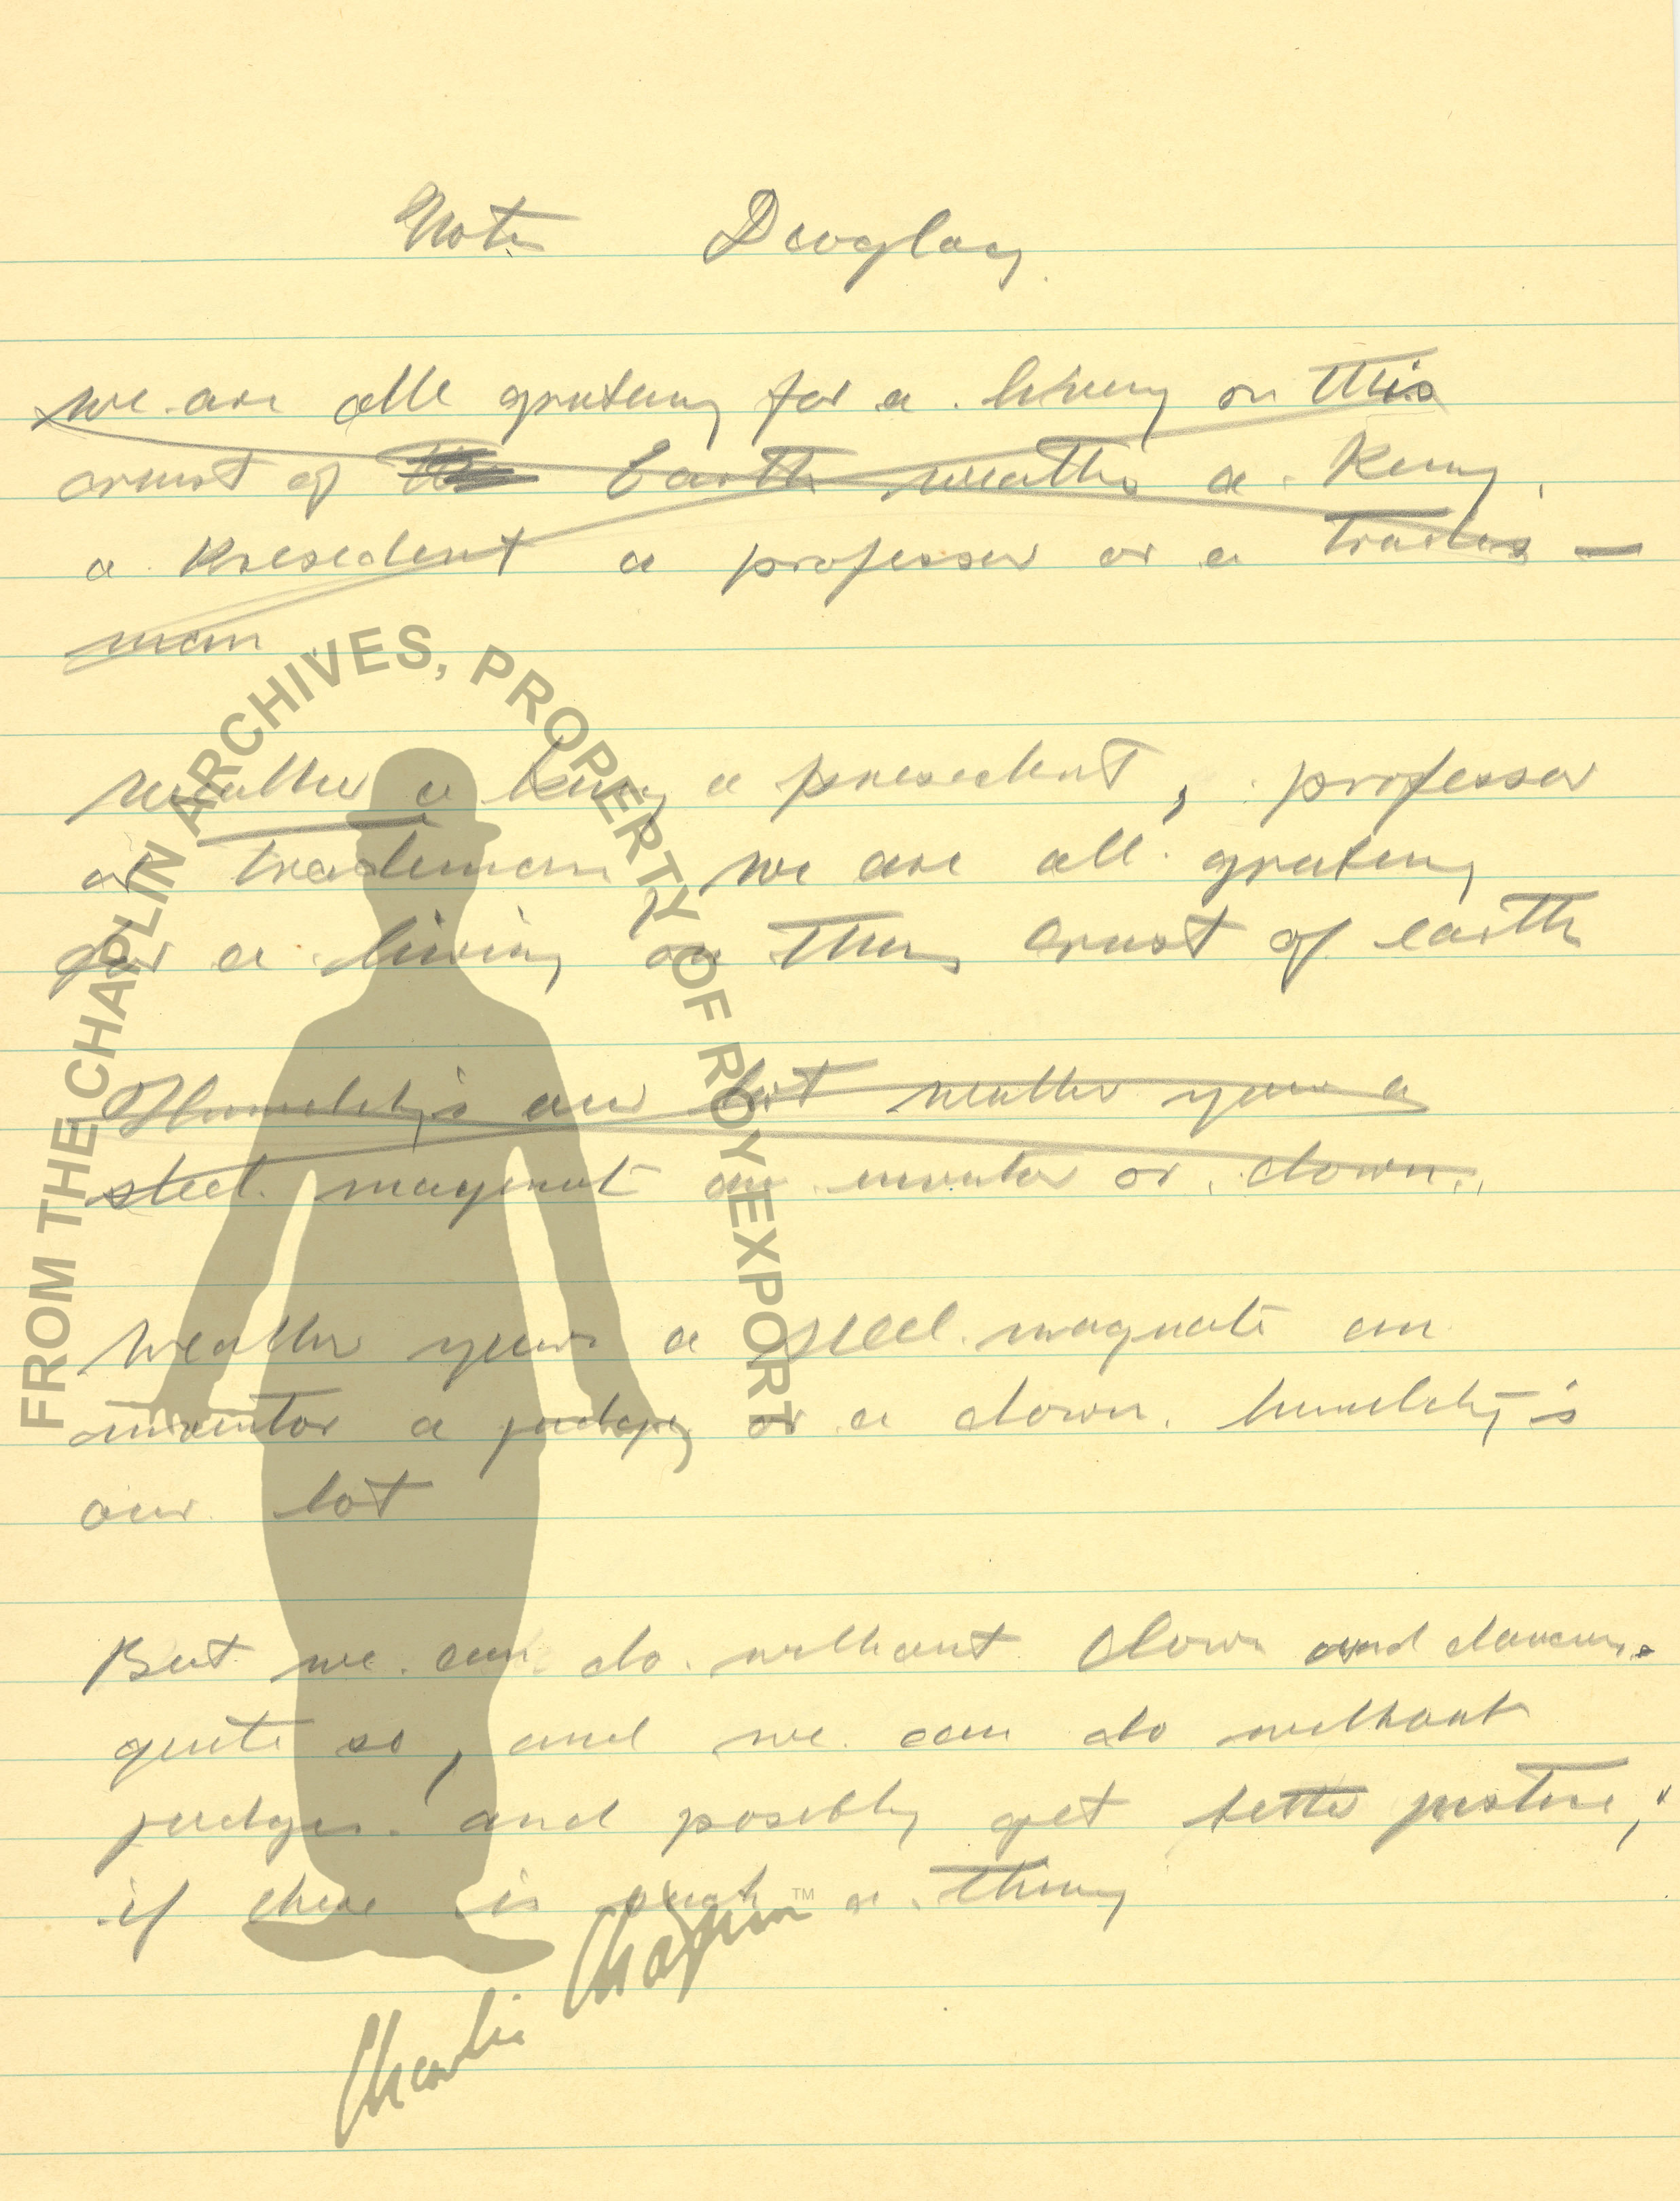 Notes Douglas
we are all grubing for a living on this
crust of the Earth weather a King,
a President a professor or a trades -
man
weather a king a president, professor
or trademan, we are all grubing
for a living on this crust of earth
Humility is our lot weather your a
steel magnat an inventor or clown.
weather your a steel magnate an
inventor a judge, or a clown. humility is
our lot
But we can do without clowns and
quite so, and we can do without
judges. and posibly get better justice,
if there is such a thing
FROM THE CHAPLIN ARCHIVES, PROPERTY OF ROY EXPORT
TM
Charlie Chaplin